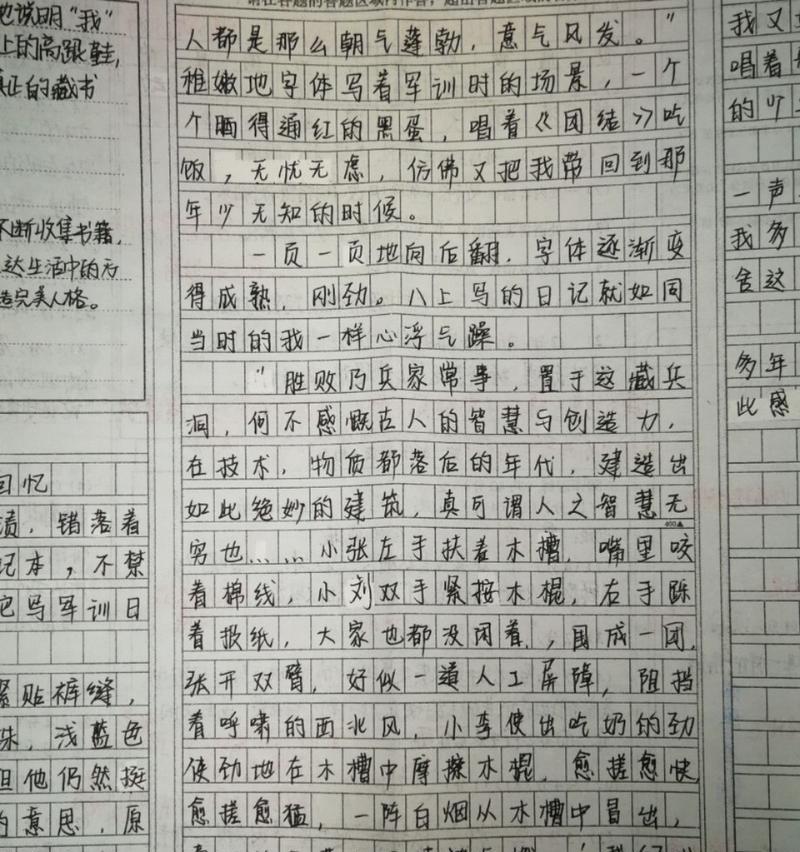 也说明“我”
上的高跟鞋,
真正的藏书
不断收集书籍,
达生活中的万
造完美人格。
回忆
渍,错落着
记本,不禁
它写军训日
紧贴裤缝,
珠,浅蓝色
但他仍然挺
的意思,原
请在各题的答题区域内作答,超出答题区域的答
人都是那么朝气蓬勃,意气风发。”
稚嫩地字体写着军训时的场景,一个
个晒得通红的黑蛋,唱着《团结》吃
饭,无忧无虑,仿佛又把我带回到那
年少无知的时候。
一页一页地向后翻,字体逐渐变
得成熟,刚劲。八上写的日记就如同
当时的我一样心浮气躁。
“胜败乃兵家常事,置于这藏兵
洞,何不感慨古人的智慧与创造力,
在技术,物质都落后的年代,建造出
如此绝妙的建筑,真可谓人之智慧无
400▲
穷也……小张左手扶着木槽,嘴里咬
着棉线,小刘双手紧按木棍,右手
着报纸,大家也都没闲着,围成一团,
张开双臂,好似一道人工屏障,阻挡
着呼啸的西北风,小李使出吃奶的劲
使劲地在木槽中摩擦木棍,愈搓愈快
愈搓愈猛,一阵白烟从木槽中冒出,
我又
唱着
的少
一声
我多
舍这
多年
此感